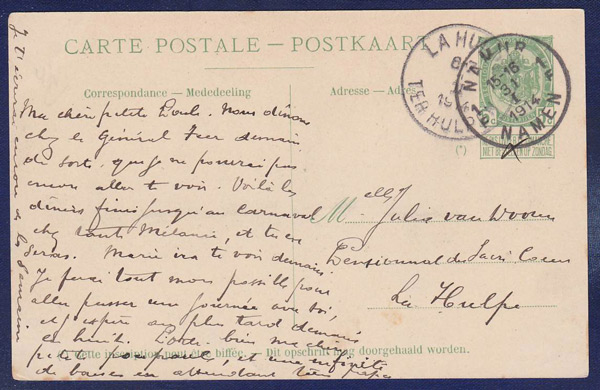 CARTE POSTALE - POSTKAART
Correspondance - Mededeeling
LA HULPE
TER HULPEN
NAMUR 1
1914
NAMEN
NE PAS LIVRER LE DIMANCHE
NIET BESTELLEN OP ZONDAG
Ma chère petite Loulou. Nous dînons
chez le Général demain
de sorte que je ne pourrai pas
encore aller te voir. Voilà les
dîners finis jusqu'au carnaval
chez tante Mélanie, et tu en
seras. Marie ira te voir demain.
Je ferai tout mon possible pour
aller passer une journée avec toi,
et j'espère au plus tard
en huit. bien ma chère
petite et une infinité
de baisers en attendant
Je t'écrirai encore de la semaine
Melle Julia van
Pensionnat du Sacré Coeur
La Hulpe
Cette inscription peut être biffée. - Dit opschrift mag doorgehaald worden.